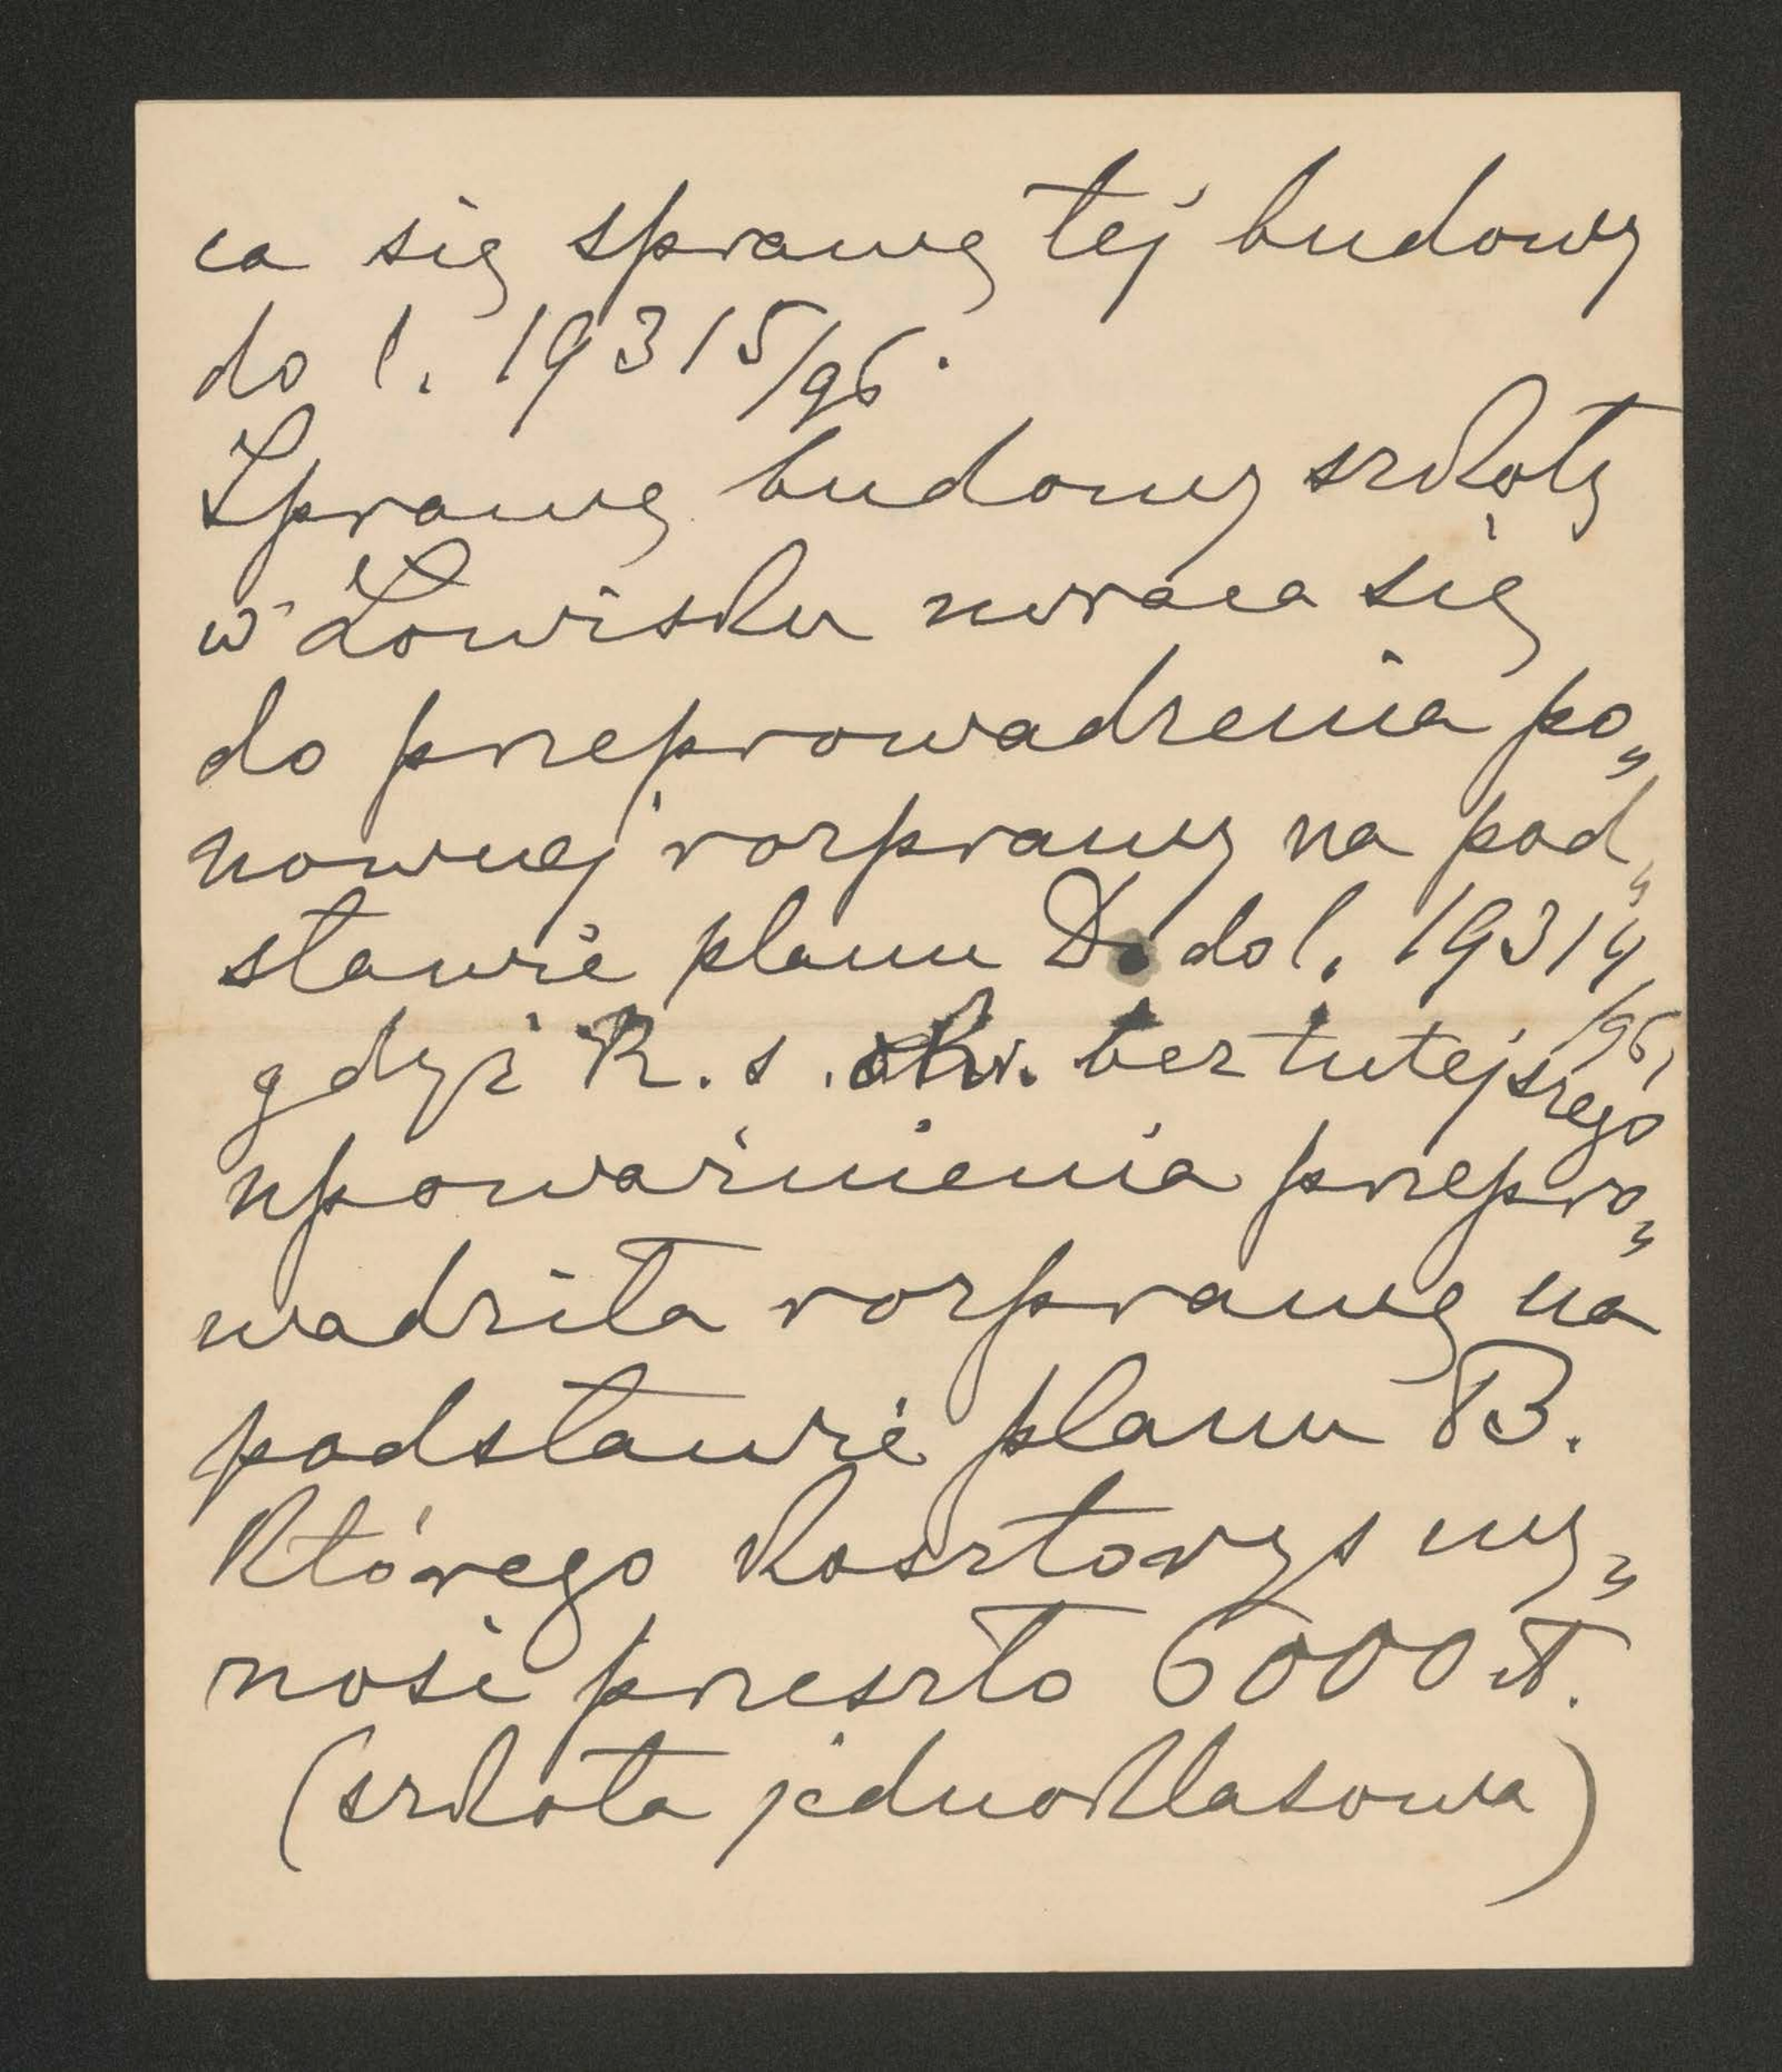 ca się sprawę tej budowy
do l. 19315/96.
Sprawę budowy szkoły
w Łowisku zwraca się
do przeprowadzenia po„
nownej rozprawy na pod„
stawie planu D. do l. 19314
/96,
gdyż R. s. okr. bez tutejszego
upoważnienia przepro„
wadziła rozprawę na
podstawie planu B.
którego kosztorys wy„
nosi przeszło 6000 zł.
(szkoła jednoklasowa)